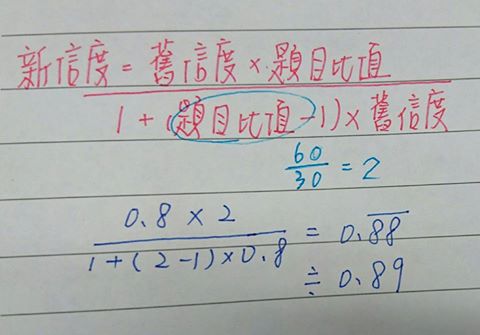 新信度 = 舊信度 × 題目比值
1 + (題目比值 - 1) × 舊信度
60
30 = 2
0.8 × 2
1 + ( 2 - 1 ) × 0.8 = 0.8̅8̅
≒ 0.89